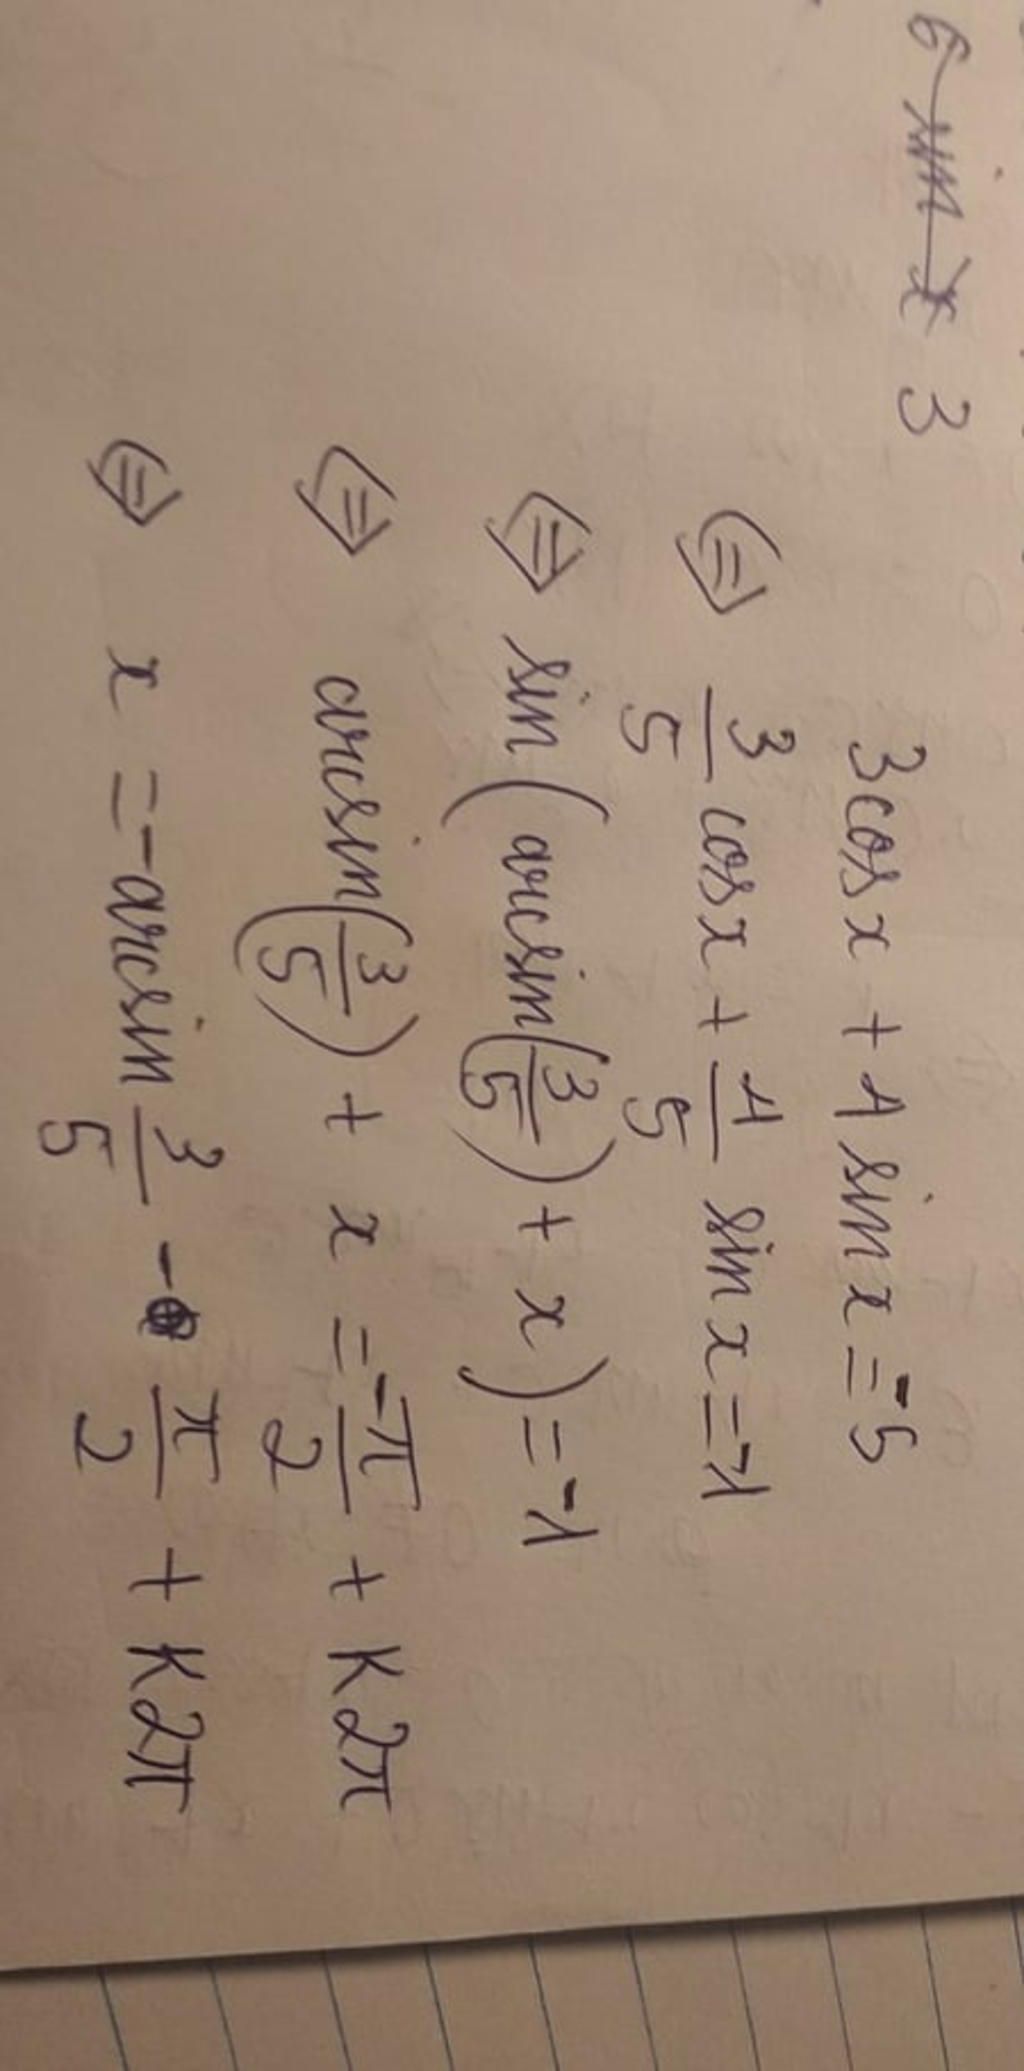 6 sin x 3
3cosx + 4 sin x = -5
⇔ 3/5 cosx + 4/5 sin x = -1
⇔ sin(arcsin(3/5) + x) = -1
⇔ arcsin(3/5) + x = -π/2 + K2π
⇔ x = -arcsin 3/5 - π/2 + K2π